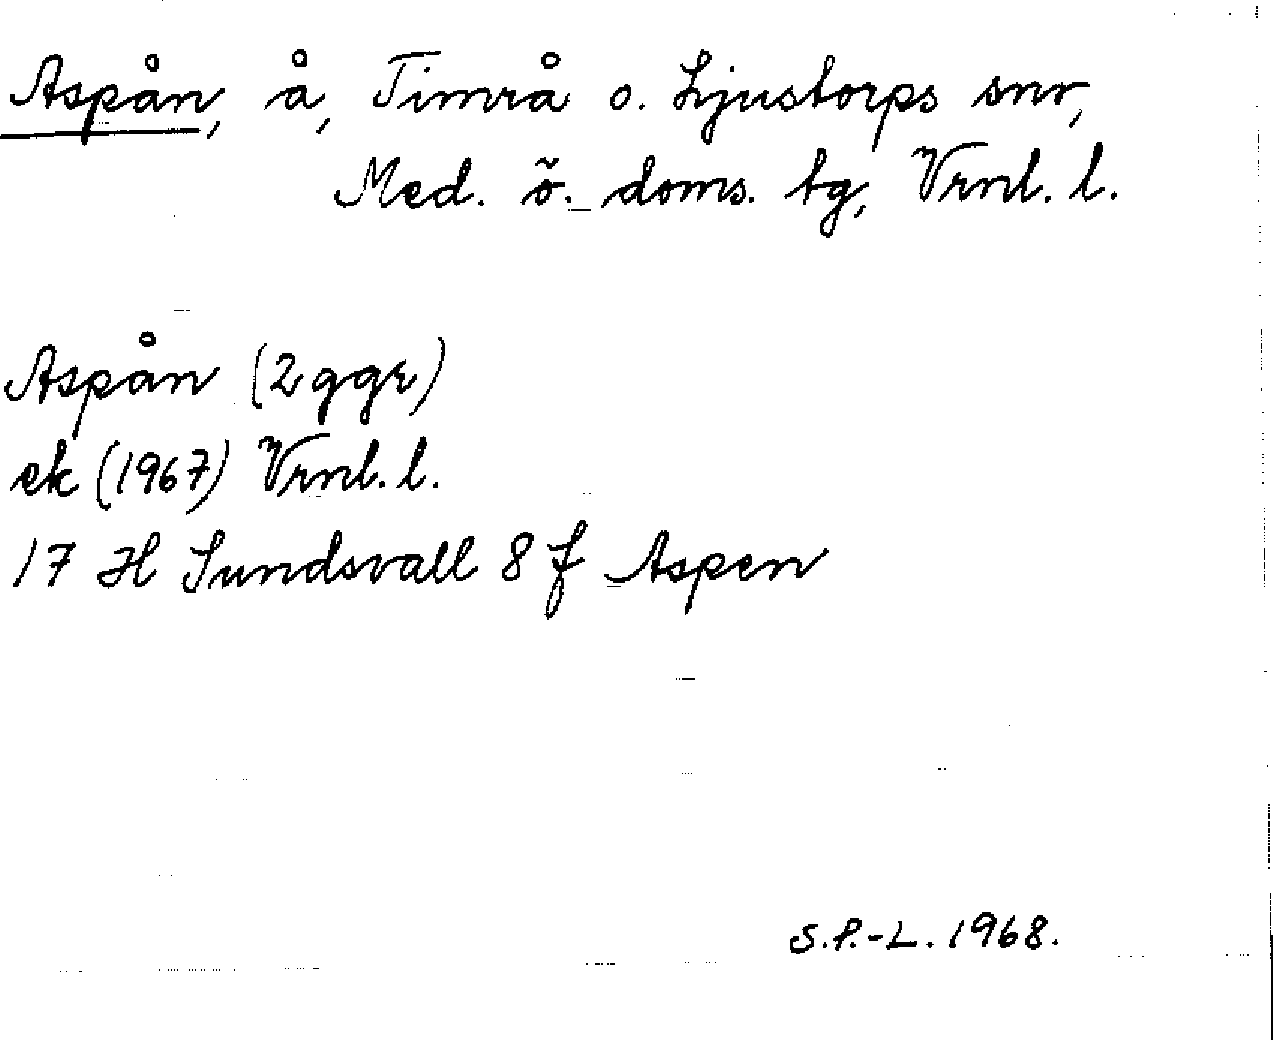 Aspån, å, Timrå o. Ljustorps snr,
Med. ö. doms. tg, Vrnl. l.
Aspån (2 ggr)
ek (1967) Vrnl. l.
17 H Sundsvall 8 f Aspen
S.P.-L. 1968.